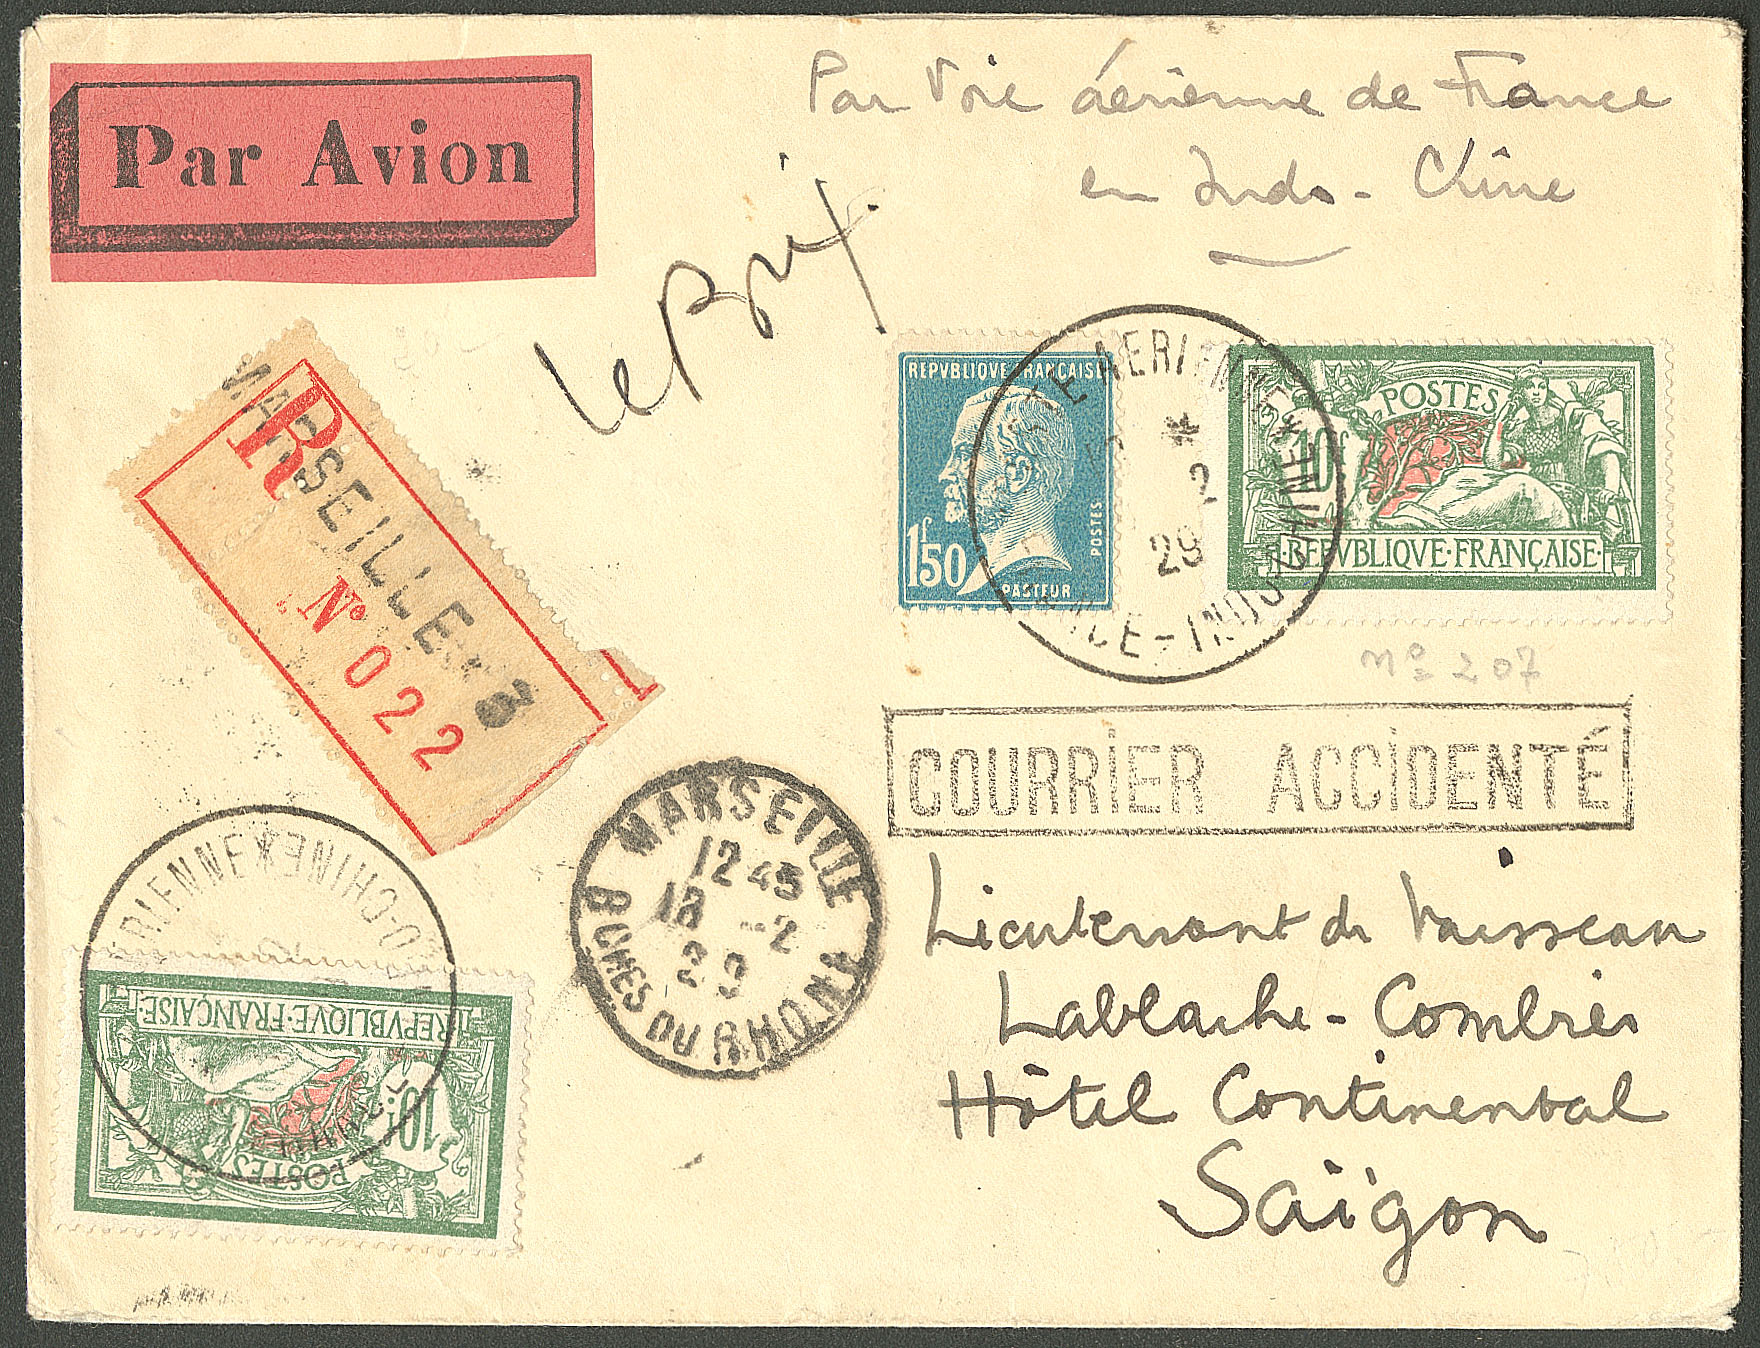 Par Avion
Par Voie aérienne de France
en Indo-Chine
Le Brix
R
MARSEILLE 3
N° 022
REPVBLIQVE FRANÇAISE
1f50
POSTES
PASTEUR
AERIENNE * INDOCHINE *
2
29
POSTES
10f
REPVBLIQVE·FRANÇAISE
n° 207
COURRIER ACCIDENTÉ
MARSEILLE
12 45
18 -2
29
BCHES DU RHONE
Lieutenant de Vaisseau
Lablache-Combier
Hôtel Continental
Saïgon
REPVBLIQVE·FRANÇAISE
10f
POSTES